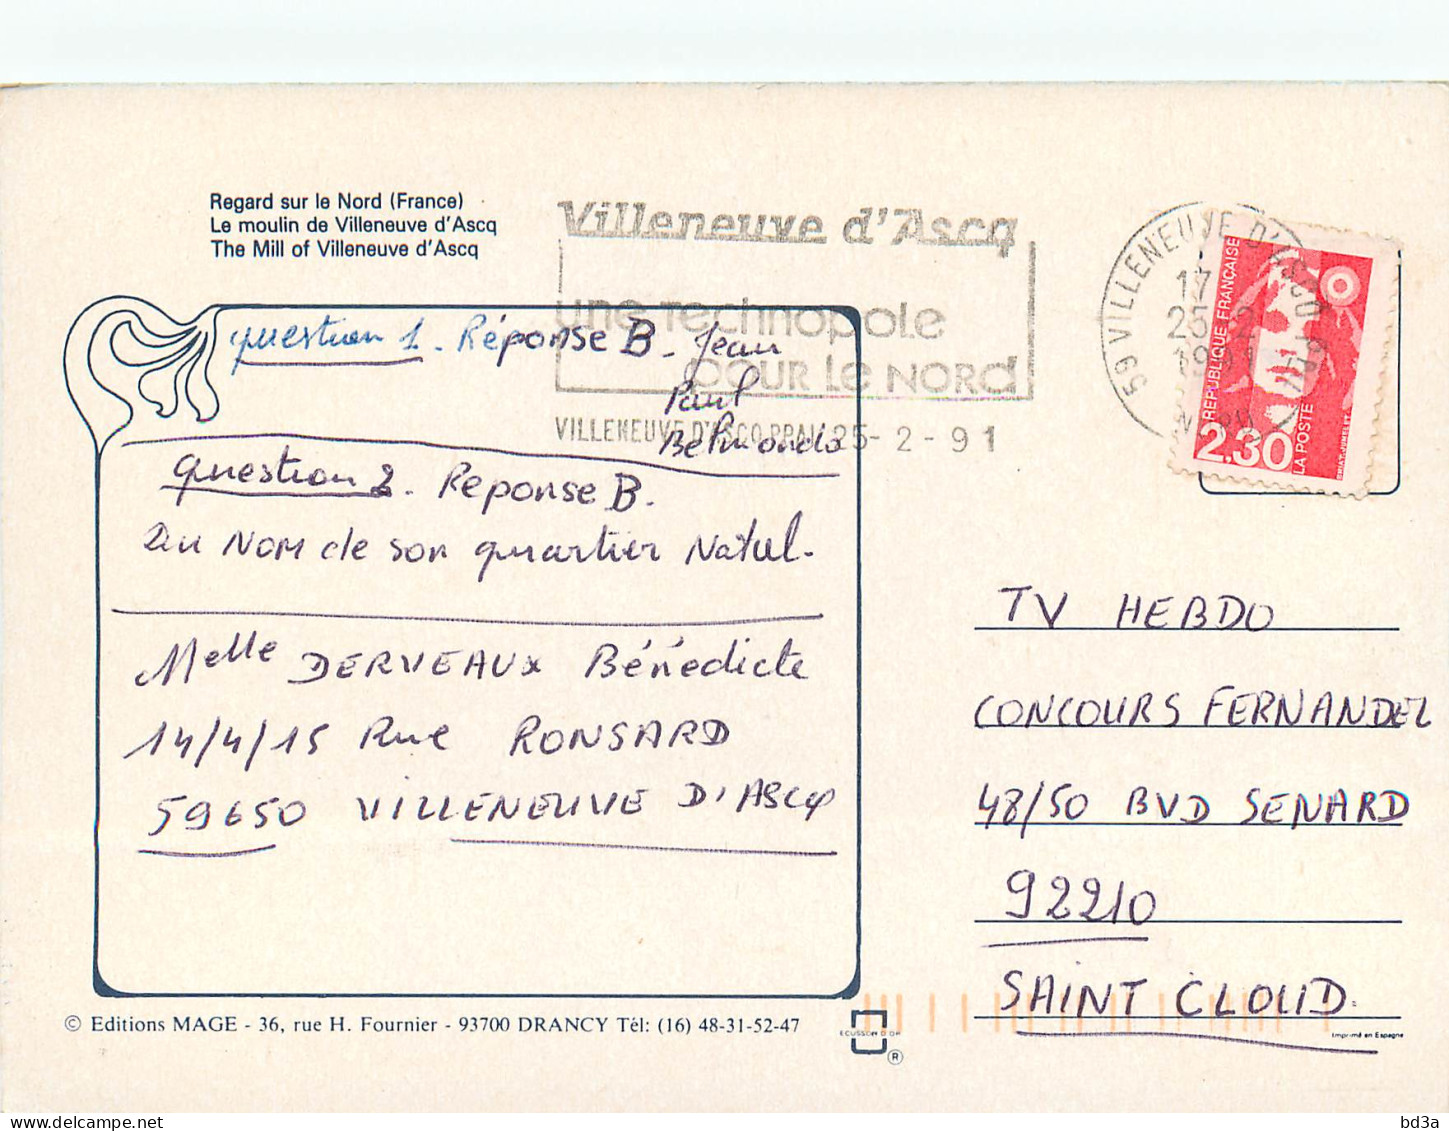 Regard sur le Nord (France)
Le moulin de Villeneuve d'Ascq
The Mill of Villeneuve d'Ascq
Villeneuve d'Ascq
une Technopole
POUR Le NORD
VILLENEUVE D'ASCQ PPAL 25-2-91
59 VILLENEUVE D'ASCQ PPAL
17
25-2
1991
NORD
REPUBLIQUE FRANÇAISE
2.30
LA POSTE
question 1. Réponse B. Jean
Paul
Belmondo
question 2. Reponse B.
Du NOM de son quartier Natal.
Melle DERVEAUX Bénédicte
14/4/15 Rue RONSARD
59650 VILLENEUVE D'ASCQ
TV HEBDO
CONCOURS FERNANDEL
48/50 BVD SENARD
92210
SAINT CLOUD
© Editions MAGE - 36, rue H. Fournier - 93700 DRANCY Tél: (16) 48-31-52-47
ECUSSON D'OR
®
Imprimé en Espagne
delcampe.net
bd3a